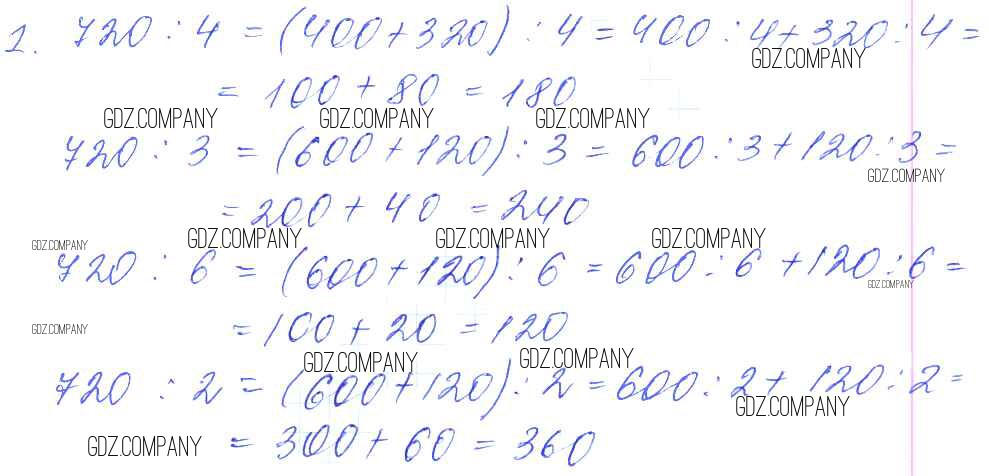 1. 720 : 4 = (400 + 320) : 4 = 400 : 4 + 320 : 4 =
GDZ.COMPANY
= 100 + 80 = 180
GDZ.COMPANY GDZ.COMPANY GDZ.COMPANY
720 : 3 = (600 + 120) : 3 = 600 : 3 + 120 : 3 =
GDZ.COMPANY
= 200 + 40 = 240
GDZ.COMPANY GDZ.COMPANY GDZ.COMPANY GDZ.COMPANY
720 : 6 = (600 + 120) : 6 = 600 : 6 + 120 : 6 =
GDZ.COMPANY
GDZ.COMPANY
= 100 + 20 = 120
GDZ.COMPANY GDZ.COMPANY
720 : 2 = (600 + 120) : 2 = 600 : 2 + 120 : 2 =
GDZ.COMPANY
GDZ.COMPANY
= 300 + 60 = 360